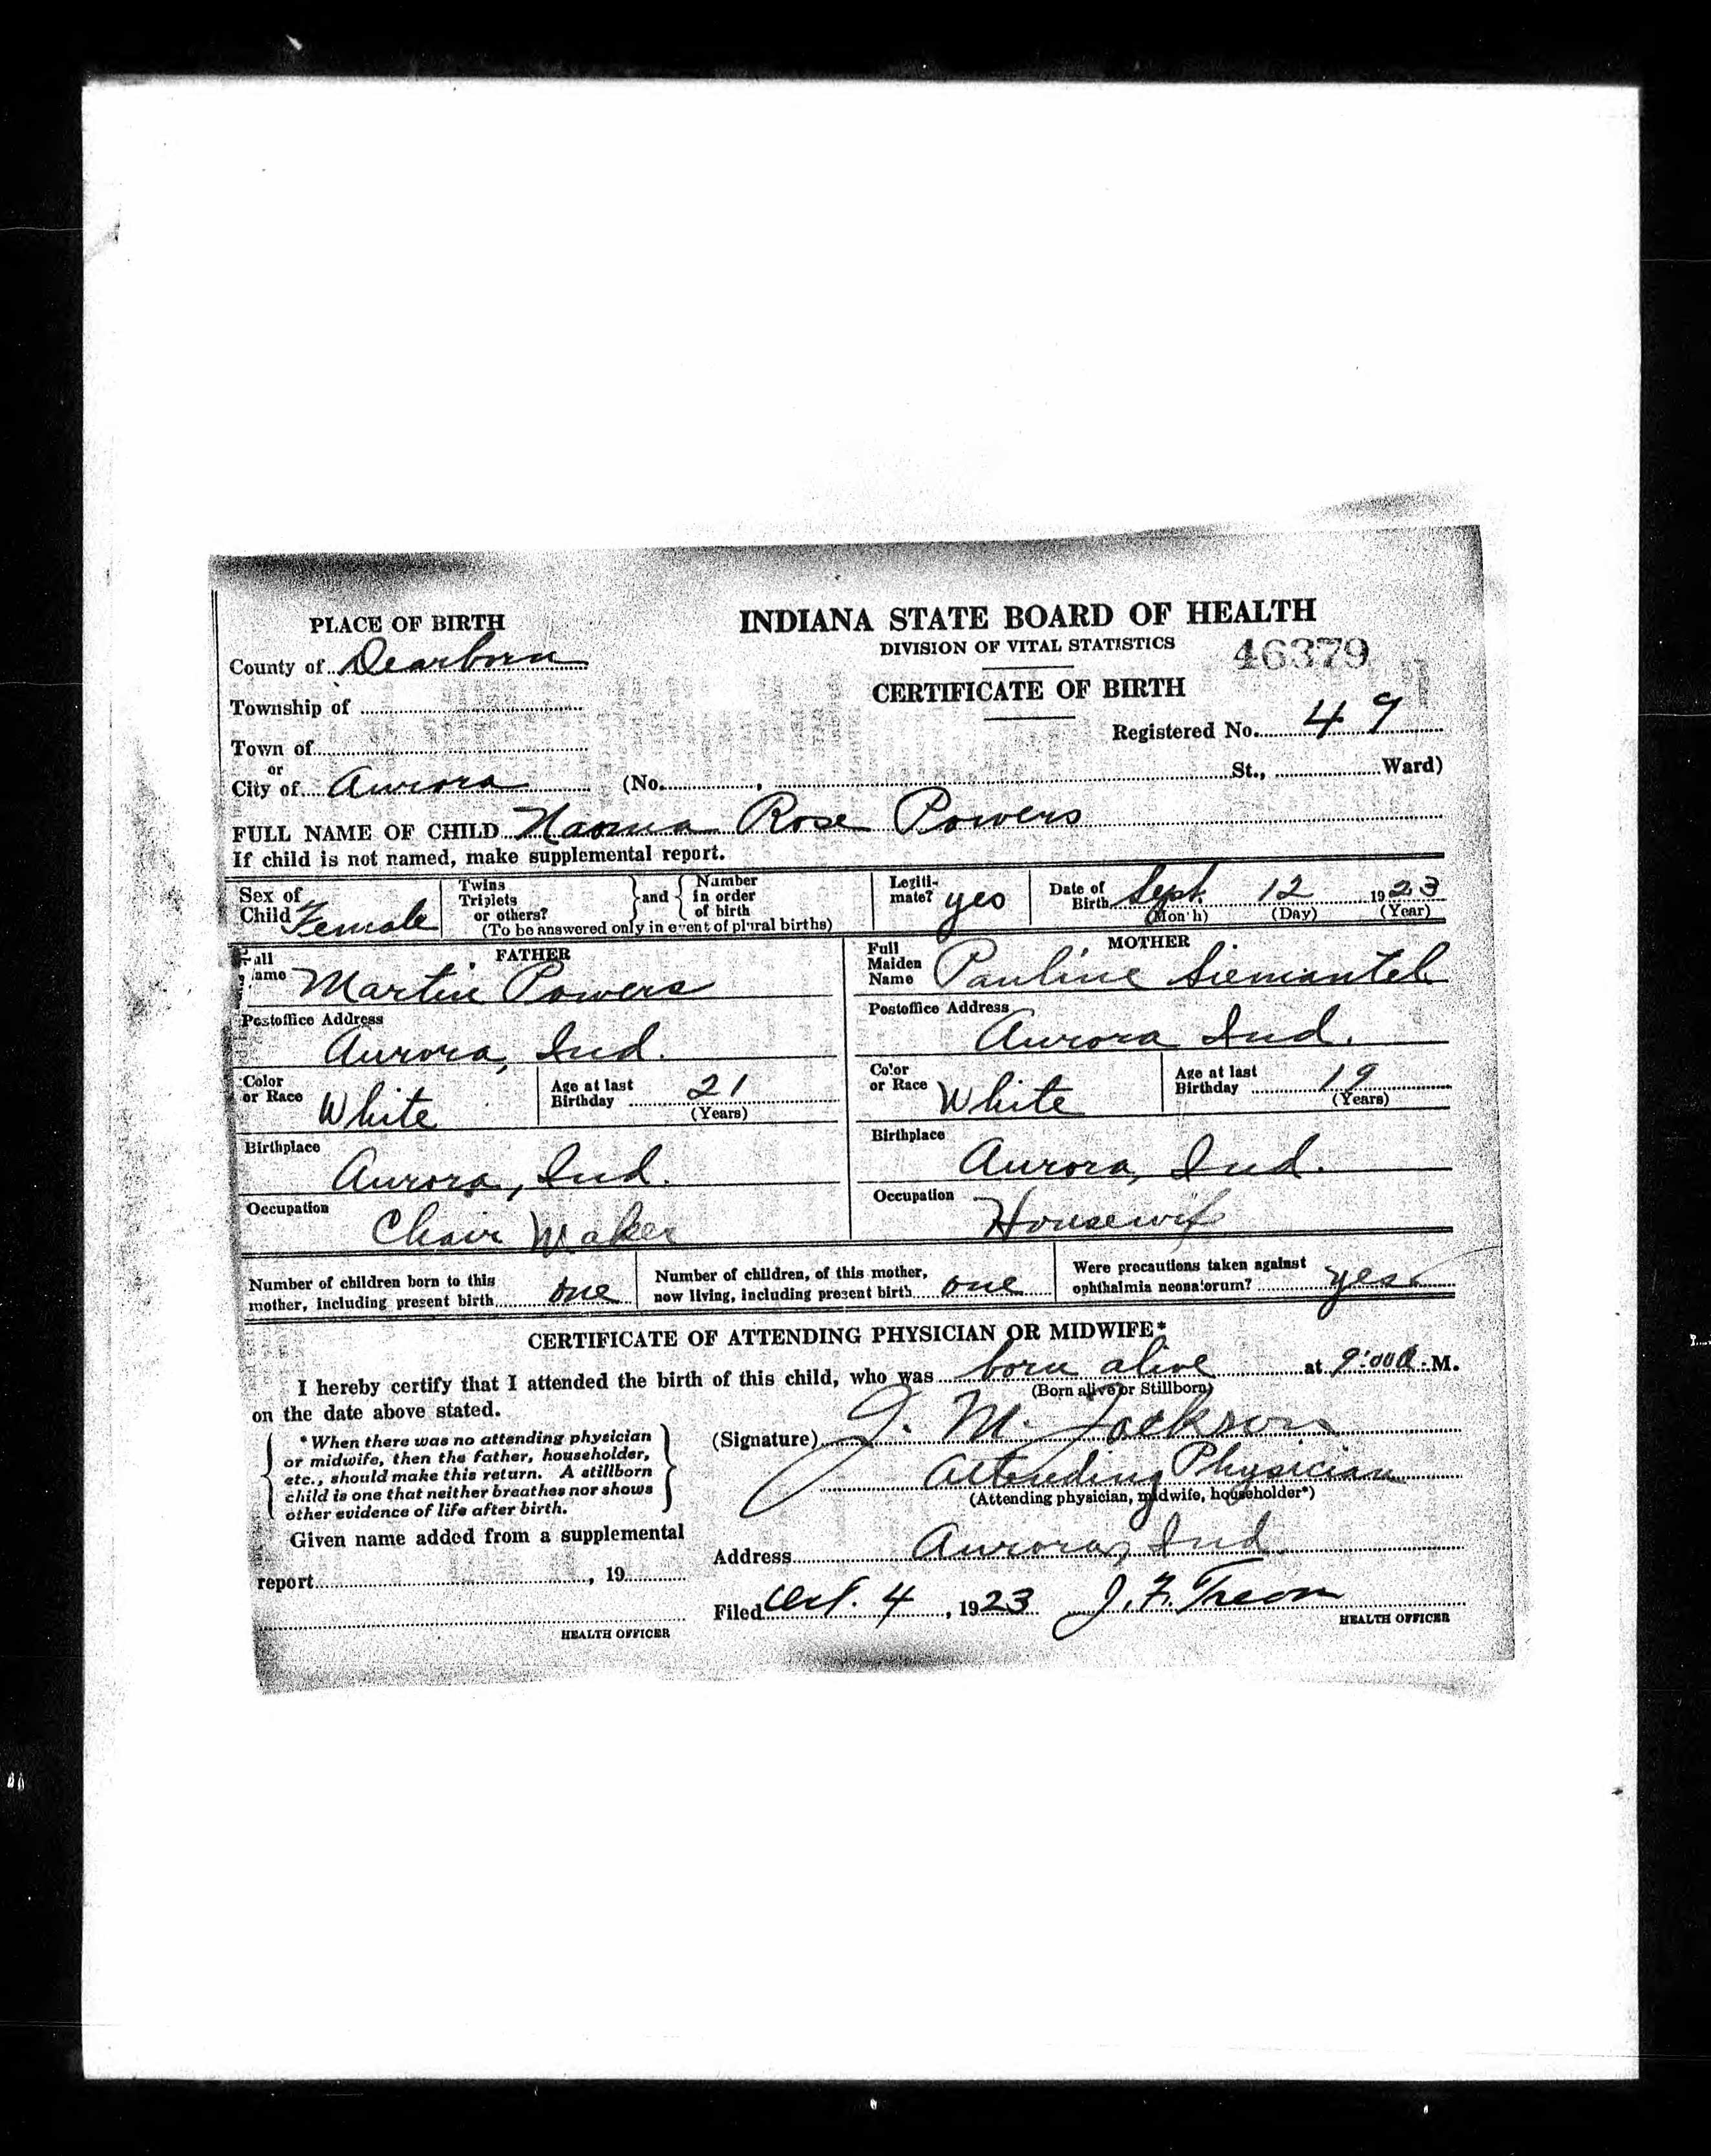 PLACE OF BIRTH
County of Dearborn
Township of
Town of
or
City of Aurora (No. , St., Ward)
INDIANA STATE BOARD OF HEALTH
DIVISION OF VITAL STATISTICS
46379
CERTIFICATE OF BIRTH
Registered No. 49
FULL NAME OF CHILD Naoma Rose Powers
If child is not named, make supplemental report.
Sex of Child Female
Twins Triplets or others? and Number in order of birth
(To be answered only in event of plural births)
Legiti-mate? yes
Date of Birth Sept. 12 1923
(Month) (Day) (Year)
FATHER
Full Name Martin Powers
Postoffice Address
Aurora, Ind.
Color or Race White
Age at last Birthday 21
(Years)
Birthplace
Aurora, Ind.
Occupation
Chair Maker
MOTHER
Full Maiden Name Pauline Siemantel
Postoffice Address
Aurora Ind.
Color or Race White
Age at last Birthday 19
(Years)
Birthplace
Aurora, Ind.
Occupation
Housewife
Number of children born to this mother, including present birth one
Number of children, of this mother, now living, including present birth one
Were precautions taken against ophthalmia neonatorum? yes
CERTIFICATE OF ATTENDING PHYSICIAN OR MIDWIFE*
I hereby certify that I attended the birth of this child, who was born alive at 9:00 a. M.
(Born alive or Stillborn)
on the date above stated.
*When there was no attending physician
or midwife, then the father, householder,
etc., should make this return. A stillborn
child is one that neither breathes nor shows
other evidence of life after birth.
(Signature) J. M. Jackson
Attending Physician
(Attending physician, midwife, householder*)
Given name added from a supplemental
report , 19
HEALTH OFFICER
Address Aurora, Ind
Filed Oct. 4, 1923 J. F. Treon
HEALTH OFFICER